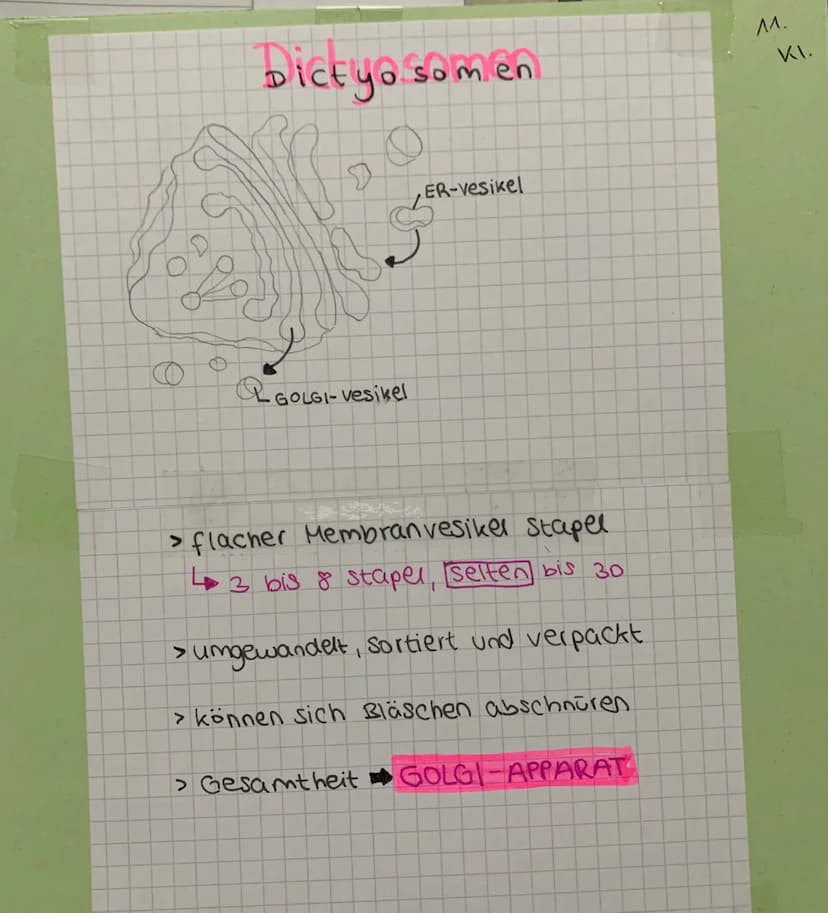 11.
Kl.
Dictyosomen
ER-vesikel
GOLGI-vesikel
> flacher Membranvesikel Stapel
↳ 3 bis 8 stapel, selten bis 30
> umgewandelt, sortiert und verpackt
> können sich Bläschen abschnüren
> Gesamtheit ➡ GOLGI-APPARAT